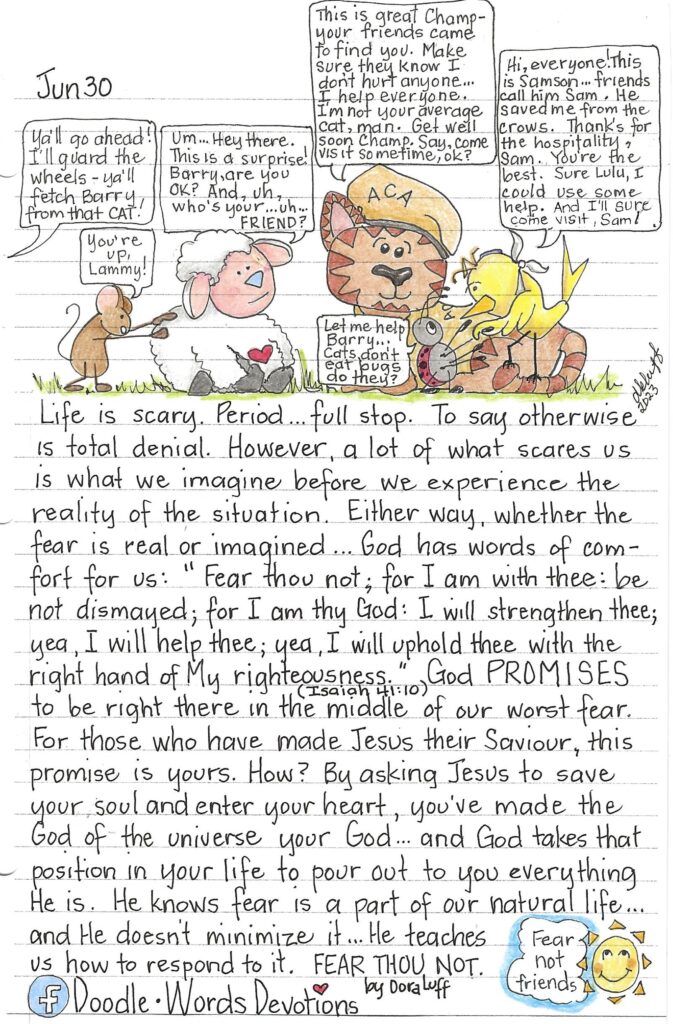 Jun 30
Ya'll go ahead!
I'll guard the
wheels - ya'll
fetch Barry
from that CAT!
You're
up,
Lammy!
Um... Hey there.
This is a surprise!
Barry, are you
OK? And, uh,
who's your...uh...
FRIEND?
This is great Champ-
your friends came
to find you. Make
sure they know I
don't hurt anyone...
I help everyone.
I'm not your average
cat, man. Get well
soon Champ. Say, come
visit sometime, ok?
Hi, everyone! This
is Samson... friends
call him Sam. He
saved me from the
crows. Thank's for
the hospitality,
Sam. You're the
best. Sure Lulu, I
could use some
help. And I'll sure
come visit, Sam!
ACA
Let me help
Barry...
Cats don't
eat bugs
do they?
2023
Life is scary. Period... full stop. To say otherwise
is total denial. However, a lot of what scares us
is what we imagine before we experience the
reality of the situation. Either way, whether the
fear is real or imagined... God has words of com-
fort for us: "Fear thou not; for I am with thee: be
not dismayed; for I am thy God: I will strengthen thee;
yea, I will help thee; yea, I will uphold thee with the
right hand of My righteousness." God PROMISES
(Isaiah 41:10)
to be right there in the middle of our worst fear.
For those who have made Jesus their Saviour, this
promise is yours. How? By asking Jesus to save
your soul and enter your heart, you've made the
God of the universe your God... and God takes that
position in your life to pour out to you everything
He is. He knows fear is a part of our natural life...
and He doesn't minimize it... He teaches
us how to respond to it. FEAR THOU NOT.
Fear
not
friends
f Doodle • Words Devotions by Dora Luff